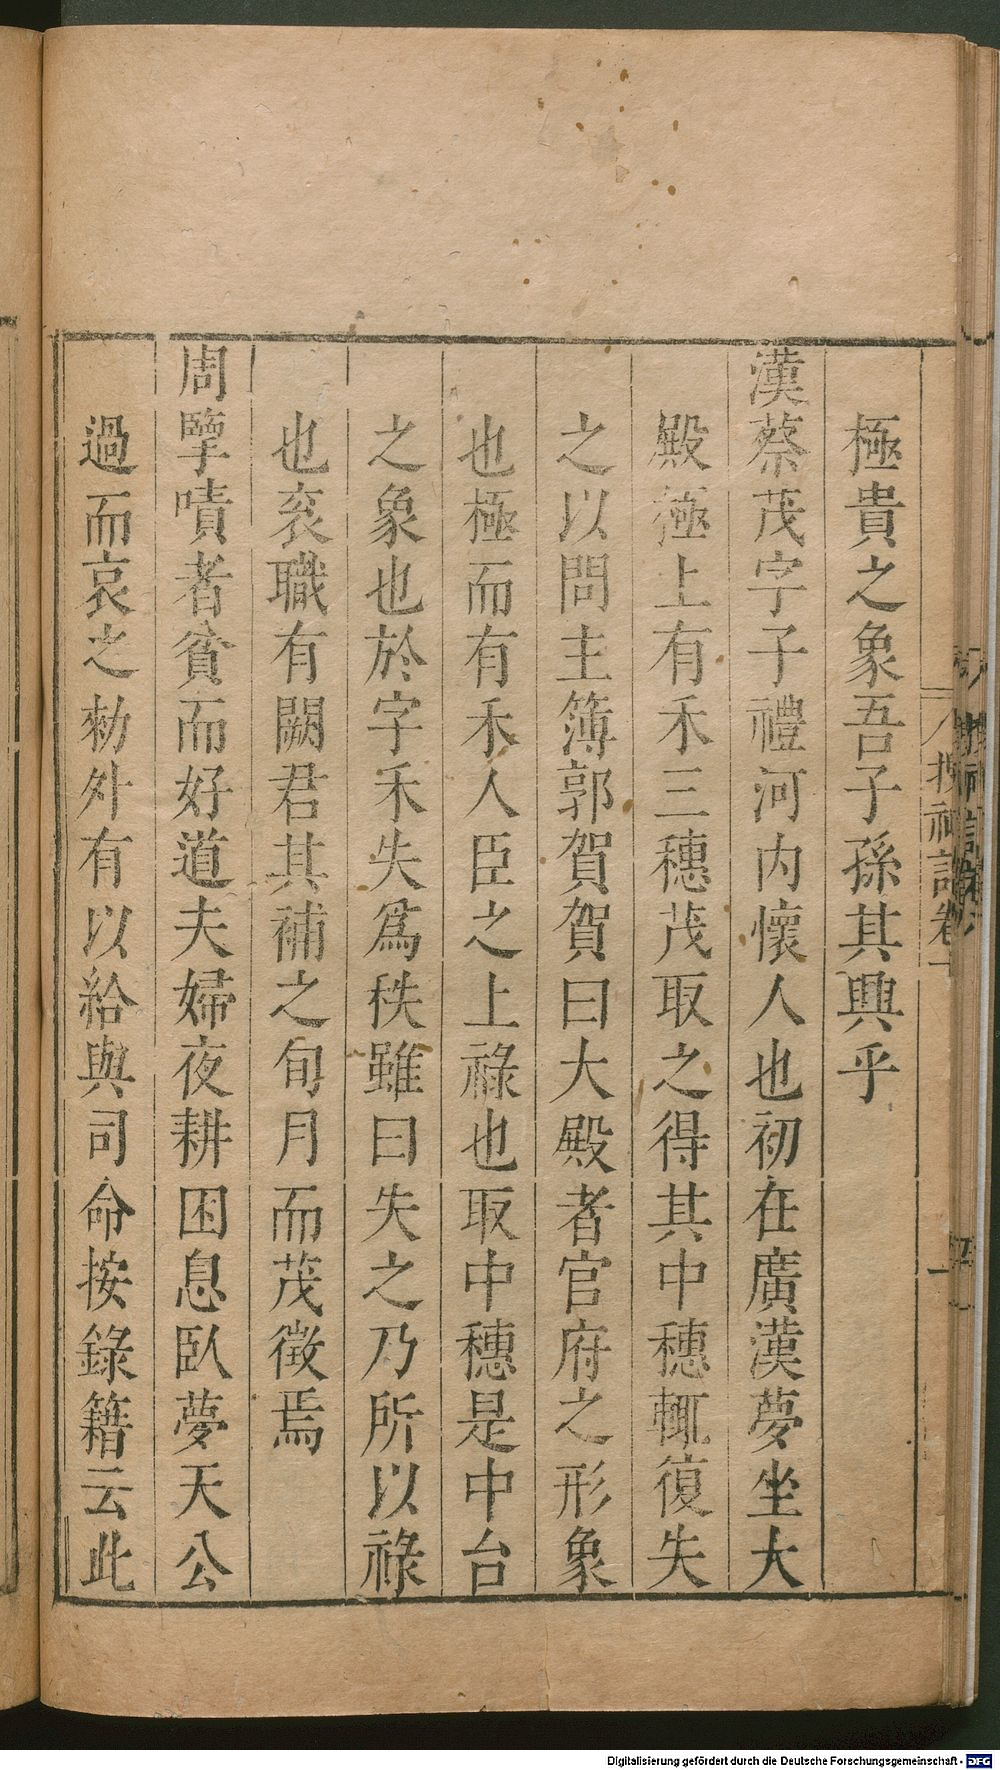 極貴之象吾子孫其興乎
漢蔡茂字子禮河内懷人也初在廣漢夢坐大
殿極上有禾三穗茂取之得其中穗輒復失
之以問主簿郭賀賀曰大殿者官府之形象
也極而有禾人臣之上祿也取中穗是中台
之象也於字禾失爲秩雖曰失之乃所以祿
也衮職有闕君其補之旬月而茂徵焉
周擥嘖者貧而好道夫婦夜耕困息臥夢天公
過而哀之勑外有以給與司命按錄籍云此
搜神記卷十
一
Digitalisierung gefördert durch die Deutsche Forschungsgemeinschaft - DFG